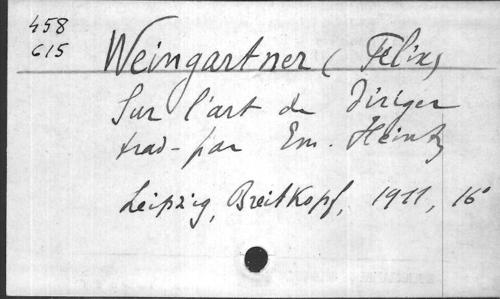 458
C15
Weingartner (Felix)
Sur l'art de diriger
trad. par Em. Heintz
Leipzig, Breitkopf, 1911, 16°